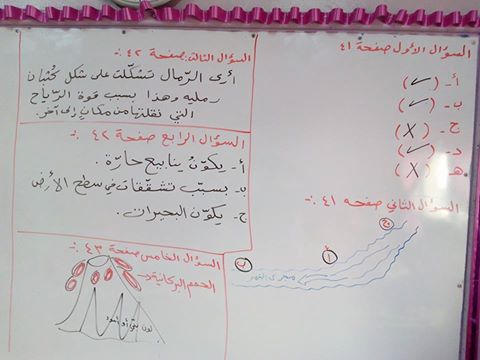 السؤال الأول صفحة ٤١
أ- (✓)
ب- (✓)
ج- (X)
د- (✓)
هـ- (X)
السؤال الثاني صفحه ٤١ :-
ج
أ
ب
مجرى النهر
السؤال الثالث: صفحة ٤٢ :-
أرى الرّمال تشكّلت على شكل كثبان
رمليه وهذا بسبب قوة الرّياح
التي نقلتها من مكان إلى آخر.
السؤال الرابع صفحة ٤٢ :-
أ- يكوّن ينابيع حارّة.
ب- يسبّب تشققات في سطح الأرض
ج- يكوّن البحيرات.
السؤال الخامس صفحة ٤٣ :-
الحمم البركانية
لون بني أو أسود